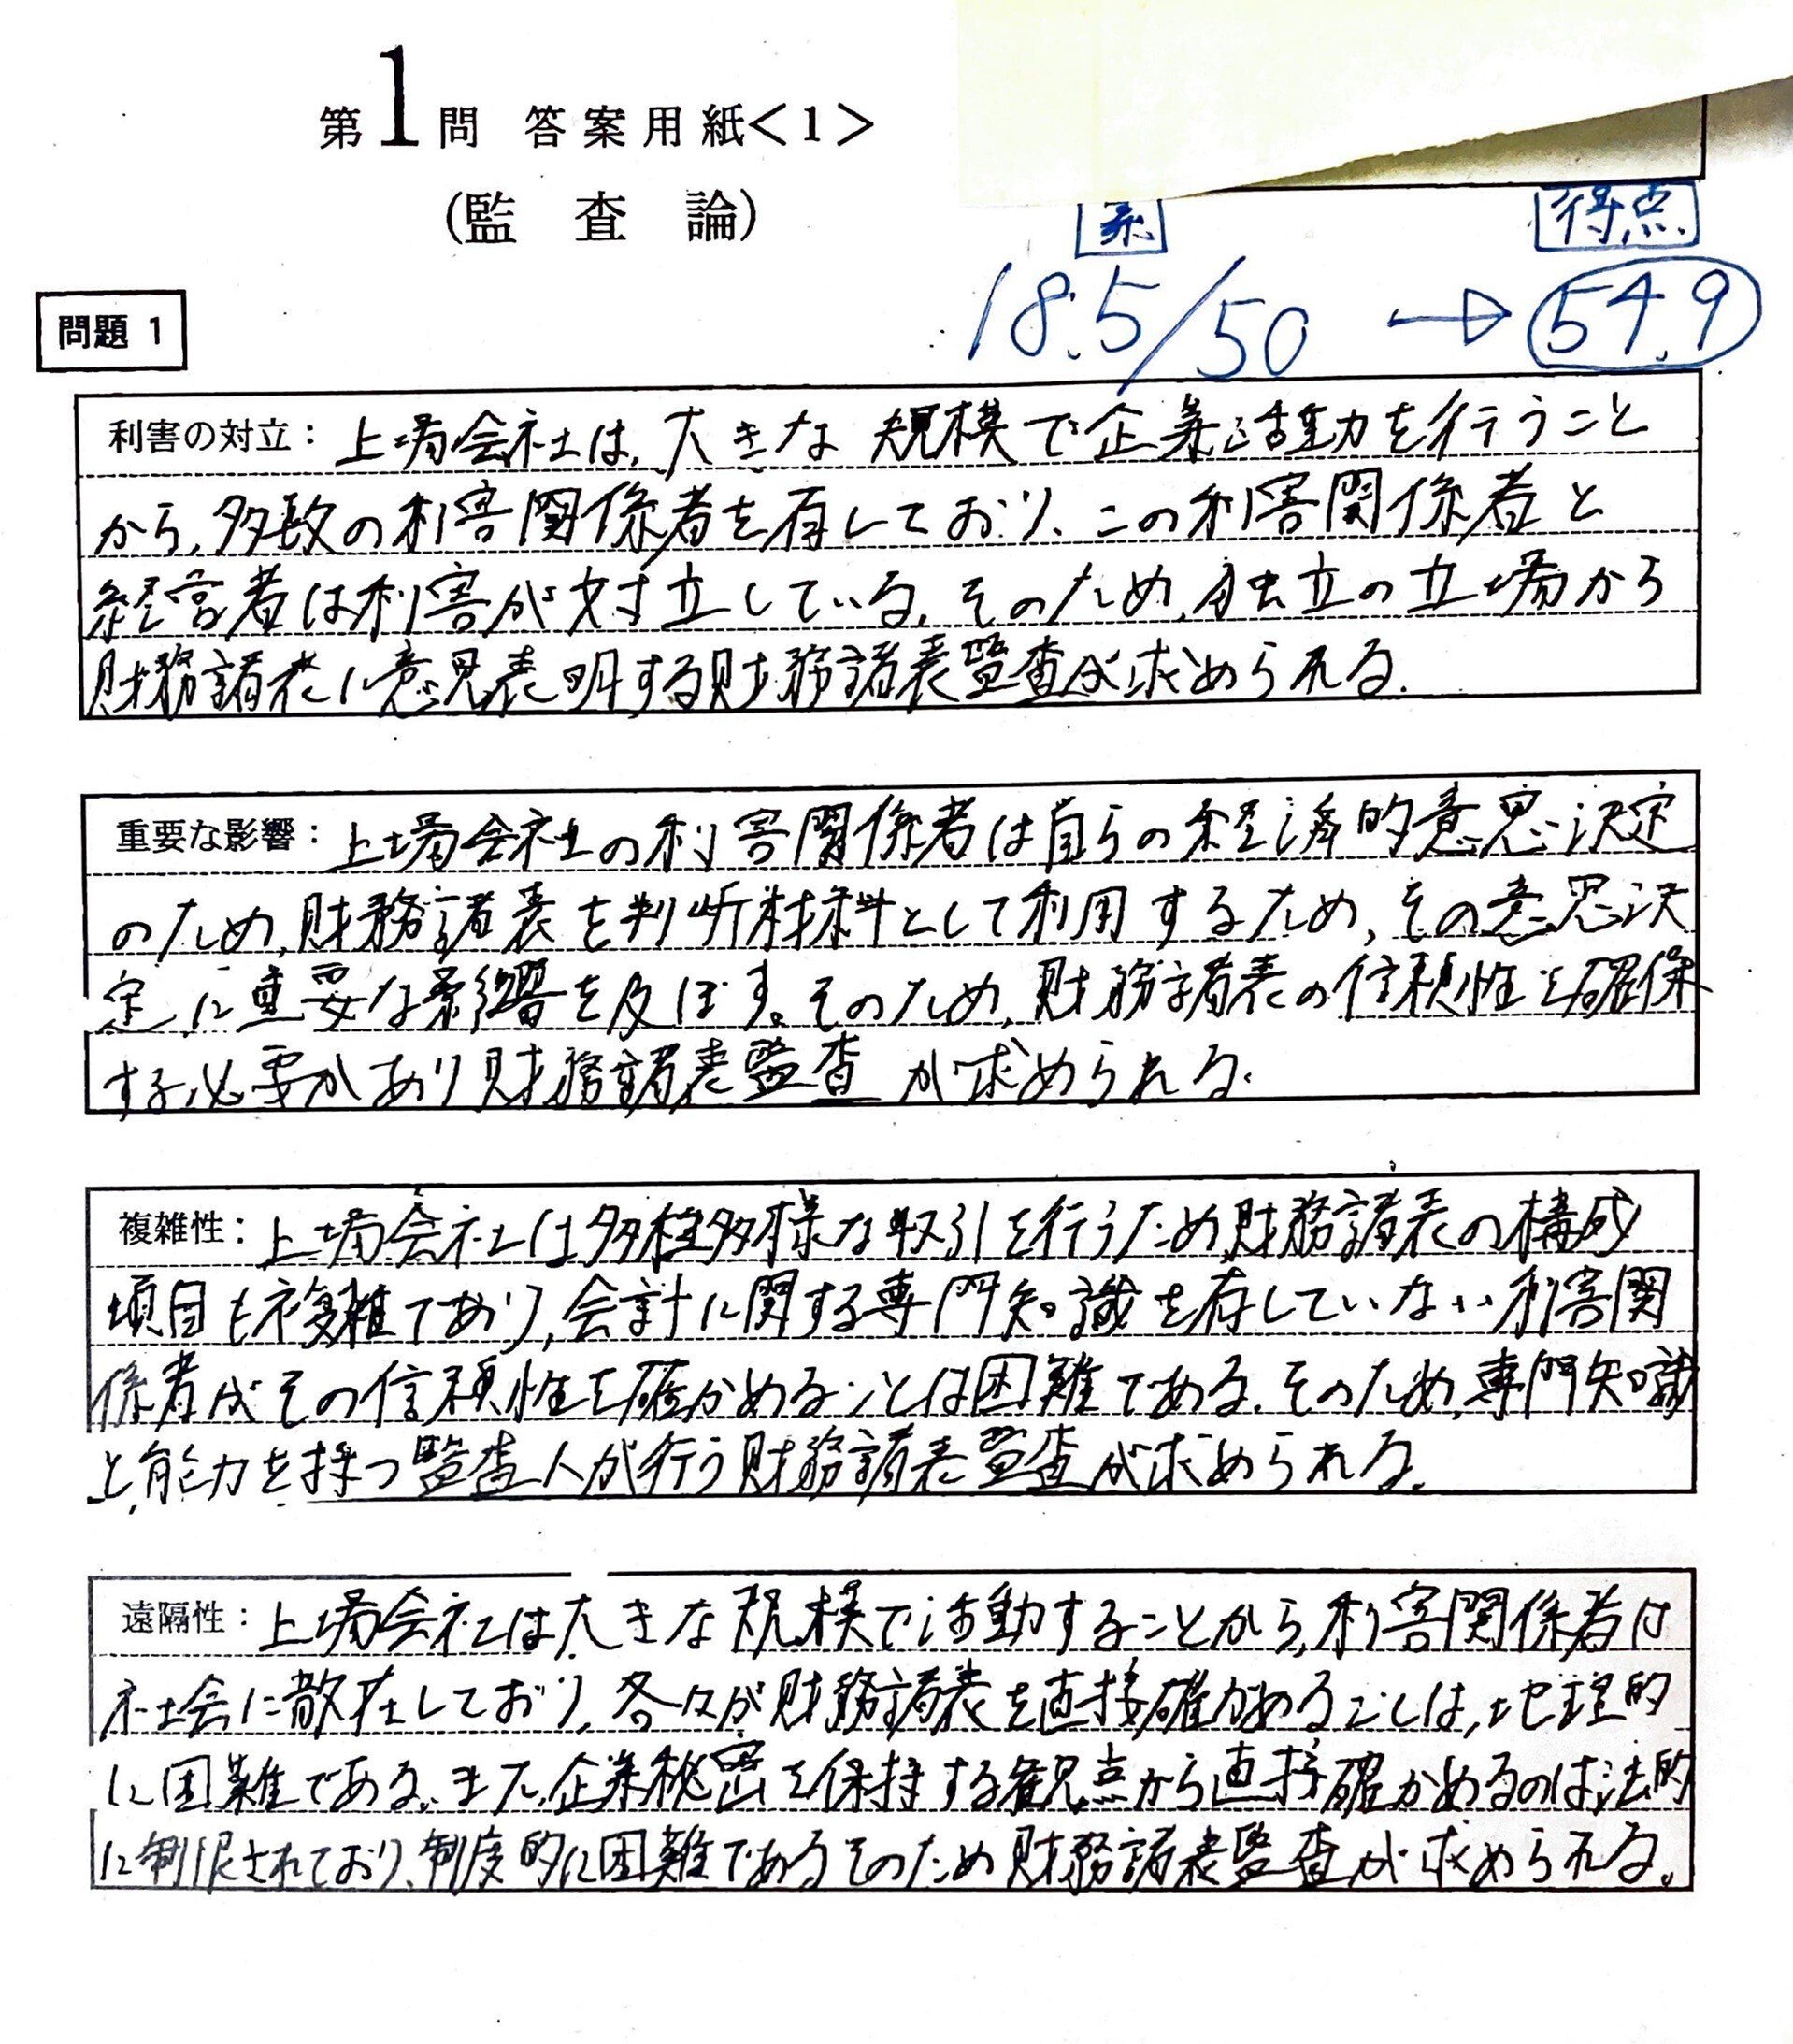 第1問 答案用紙<1>
(監査論)
素
得点
18.5/50 → 54.9
問題 1
利害の対立: 上場会社は、大きな規模で企業活動を行うこと
から、多数の利害関係者を有しており、この利害関係者と
経営者は利害が対立している。そのため、独立の立場から
財務諸表に意見表明する財務諸表監査が求められる。
重要な影響: 上場会社の利害関係者は自らの経済的意思決定
のため、財務諸表を判断材料として利用するため、その意思決
定に重要な影響を及ぼす。そのため、財務諸表の信頼性を確保
する必要があり財務諸表監査が求められる。
複雑性: 上場会社は多種多様な取引を行うため財務諸表の構成
項目も複雑であり、会計に関する専門知識を有していない利害関
係者がその信頼性を確かめることは困難である。そのため、専門知識
と能力を持つ監査人が行う財務諸表監査が求められる。
遠隔性: 上場会社は大きな規模で活動することから、利害関係者は
社会に散在しており、各々が財務諸表を直接確かめることは、地理的
に困難である。また、企業秘密を保持する観点から直接確かめるのは法的
に制限されており、制度的に困難であるそのため財務諸表監査が求められる。